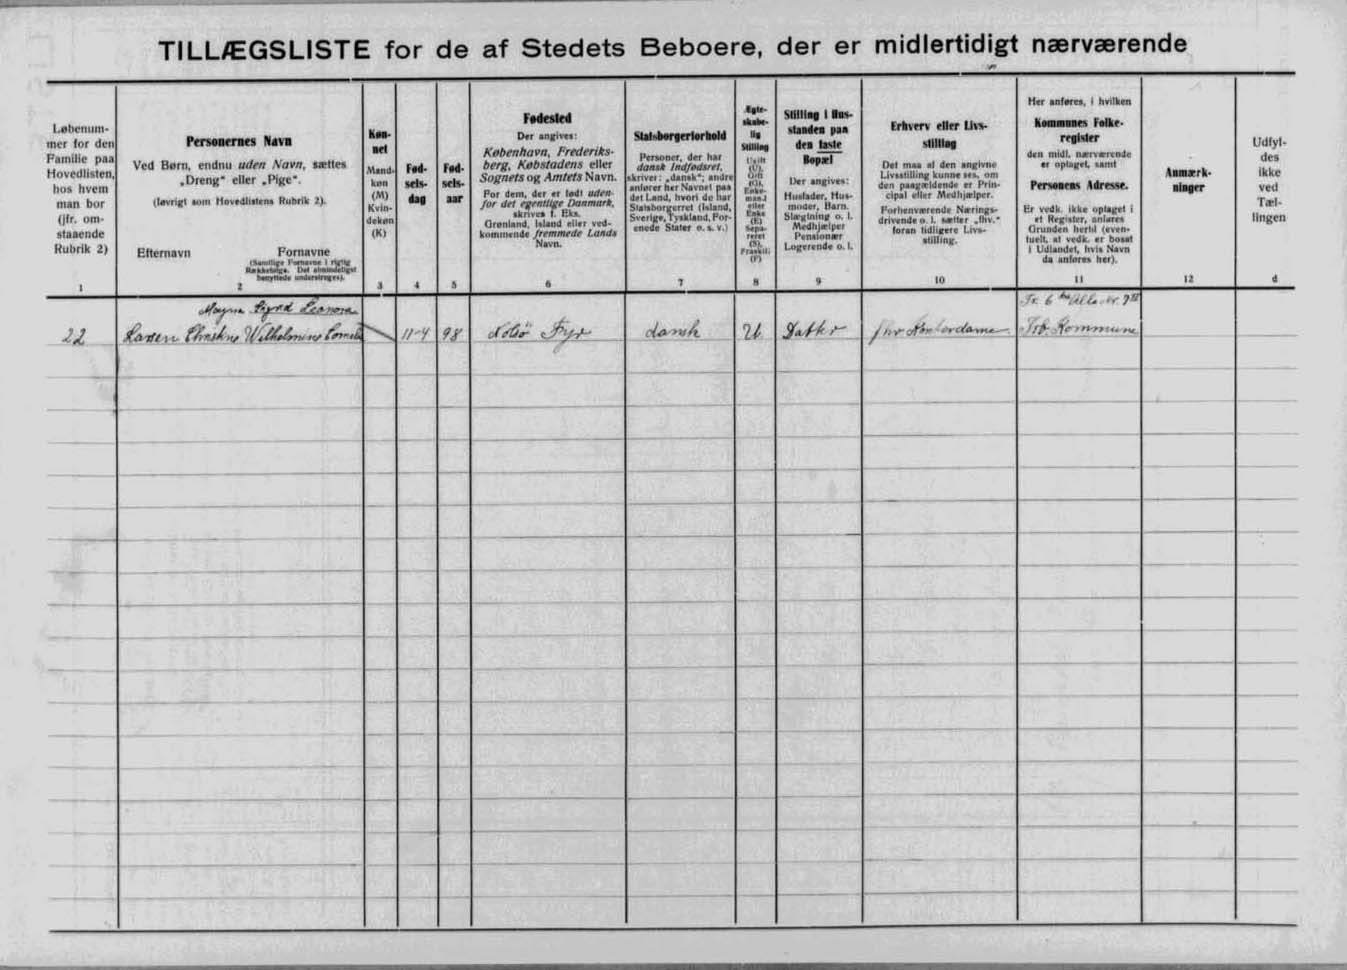 TILLÆGSLISTE for de af Stedets Beboere, der er midlertidigt nærværende
Løbenum-
mer for den
Familie paa
Hovedlisten,
hos hvem
man bor
(jfr. om-
staaende
Rubrik 2)
1
Personernes Navn
Ved Børn, endnu uden Navn, sættes
„Dreng“ eller „Pige“.
(Iøvrigt som Hovedlistens Rubrik 2).
Efternavn Fornavne
(Samtlige Fornavne i rigtig
Rækkefølge. Det almindeligst
benyttede understreges).
2
Køn-
net
Mand-
køn
(M)
Kvin-
dekøn
(K)
3
Fød-
sels-
dag
4
Fød-
sels-
aar
5
Fødested
Der angives:
København, Frederiks-
berg, Købstadens eller
Sognets og Amtets Navn.
For dem, der er født uden-
for det egentlige Danmark,
skrives f. Eks.
Grønland, Island eller ved-
kommende fremmede Lands
Navn.
6
Statsborgerforhold
Personer, der har
dansk Indfødsret,
skriver: „dansk“; andre
anfører her Navnet paa
det Land, hvori de har
Statsborgerret (Island,
Sverige, Tyskland, For-
enede Stater o. s. v.)
7
Ægte-
skabe-
lig
Stilling
Ugift
(U),
Gift
(G),
Enke-
mand
eller
Enke
(E)
Sepa-
reret
(S),
Fraskilt
(F)
8
Stilling i Hus-
standen paa
den faste
Bopæl
Der angives:
Husfader, Hus-
moder, Barn,
Slægtning o. l.
Medhjælper
Pensionær
Logerende o. l.
9
Erhverv eller Livs-
stilling
Det maa af den angivne
Livsstilling kunne ses, om
den paagældende er Prin-
cipal eller Medhjælper.
Forhenværende Nærings-
drivende o. l. sætter „fhv.“
foran tidligere Livs-
stilling.
10
Her anføres, i hvilken
Kommunes Folke-
register
den midl. nærværende
er optaget, samt
Personens Adresse.
Er vedk. ikke optaget i
et Register, anføres
Grunden hertil (even-
tuelt, at vedk. er bosat
i Udlandet, hvis Navn
da anføres her).
11
Anmærk-
ninger
12
Udfyl-
des
ikke
ved
Tæl-
lingen
d
Sigrid Leonora
22 Larsen Wilhelmine 11-4 98 Fyr dansk U Datter fhv Kommune